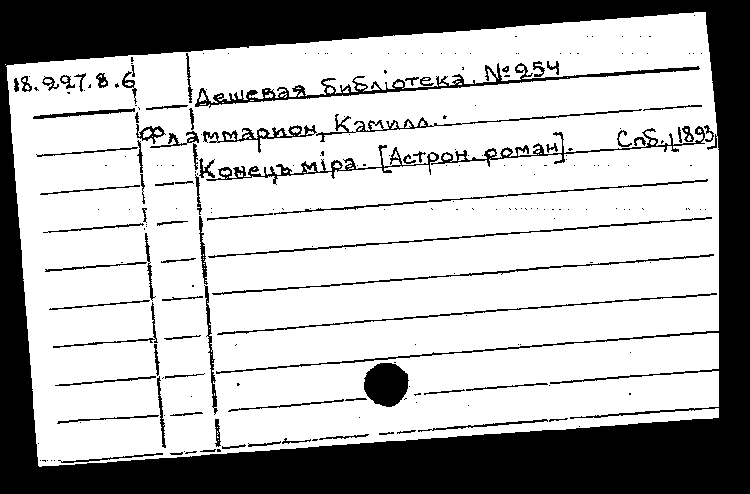 18.227.8.6
Дешевая библіотека. № 254
Фламмарион, Камилл.:
Конецъ міра. [Астрон. роман]. Спб., [1893]